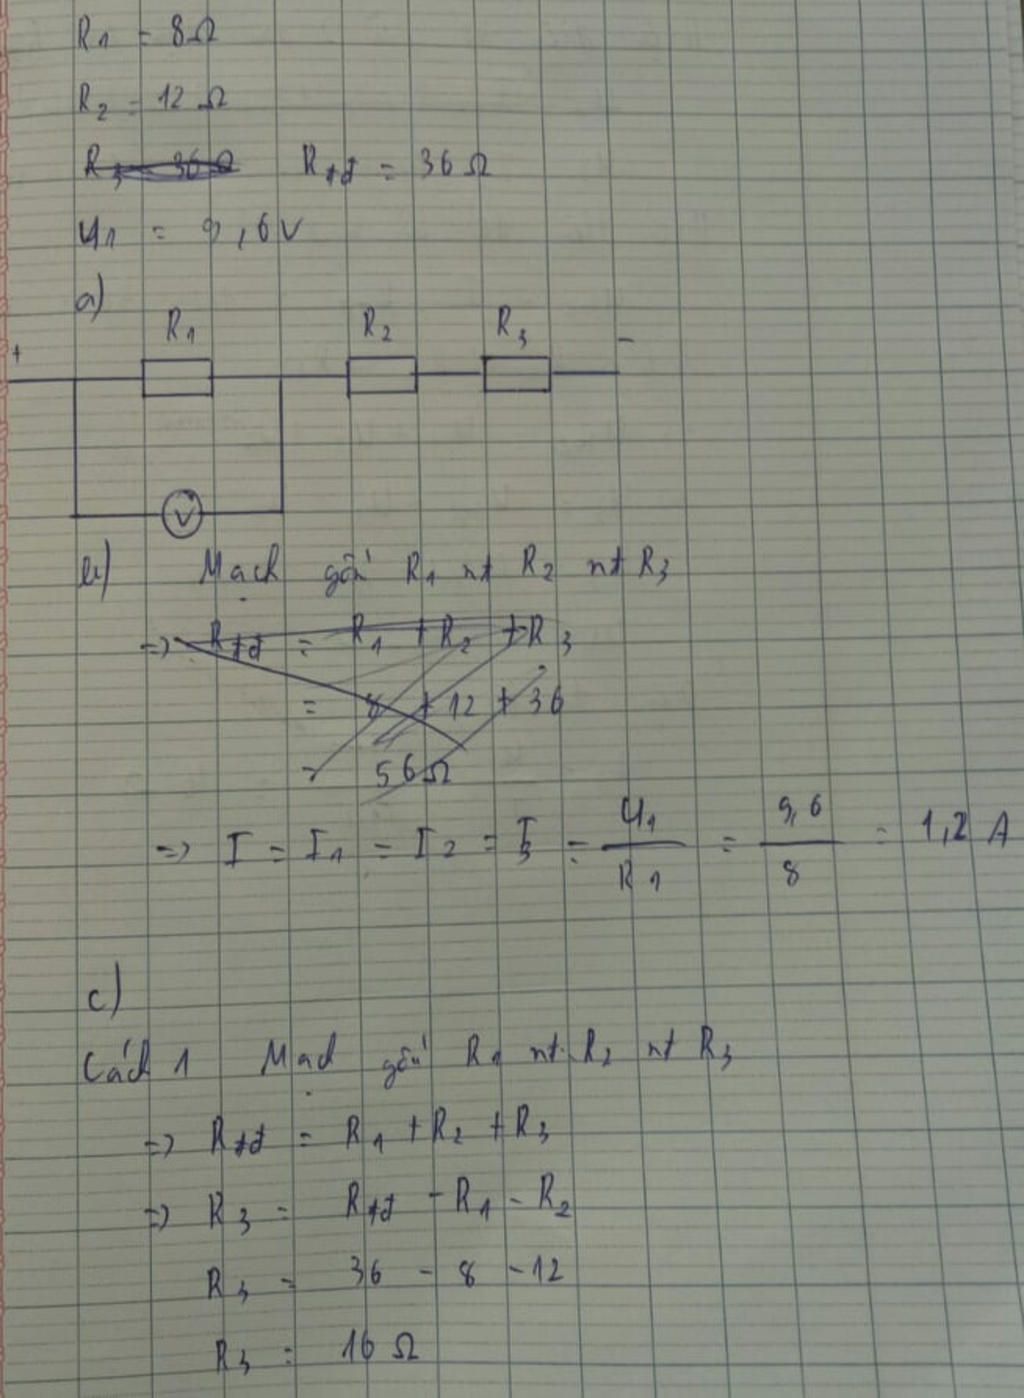 R1 = 8Ω
R2 = 12 Ω
R3 = 36Ω Rtđ = 36 Ω
U1 = 9,6V
a)
R1 R2 R3
+ -
V
b) Mạch gồm R1 nt R2 nt R3
=> Rtđ = R1 + R2 + R3
= 8 + 12 + 36
= 56Ω
=> I = I1 = I2 = I3 = U1/R1 = 9,6/8 = 1,2 A
c)
Cách 1 Mạch gồm R1 nt R2 nt R3
=> Rtđ = R1 + R2 + R3
=> R3 = Rtđ - R1 - R2
R3 = 36 - 8 - 12
R3 = 16 Ω